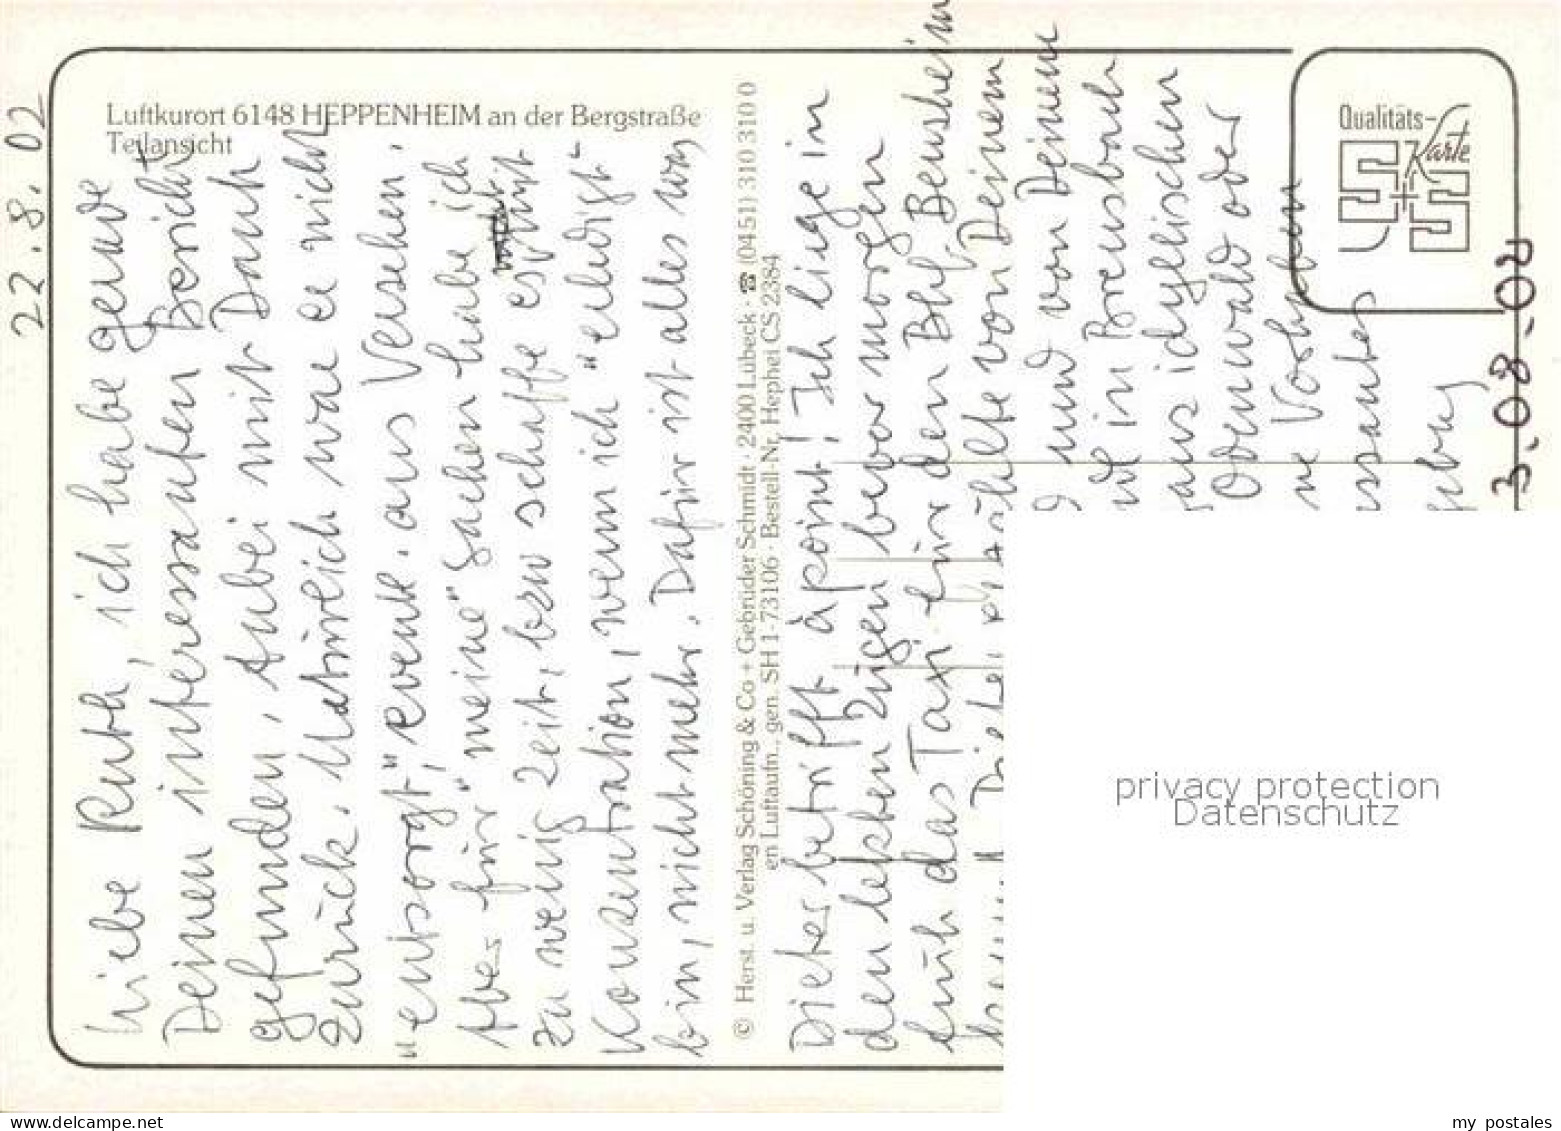 22.8.02
Luftkurort 6148 HEPPENHEIM an der Bergstraße
Teilansicht
Liebe Ruth, ich habe gerade
Deinen interessanten Bericht
gefunden, Anbei mit Dank
zurück. Natürlich war er nicht
"entsorgt", event. aus Versehen.
Aber für "meine" Sachen habe ich
zu wenig Zeit, bzw schaffe es mit
Konzentration, wenn ich "erledigt"
bin, nicht mehr. Dafür ist alles was
© Herst. u. Verlag Schöning & Co + Gebrüder Schmidt · 2400 Lübeck · ☎ (0451) 310 310 0
en Luftaufn., gen. SH 1-73106 · Bestell-Nr. Hephei CS 2384
Dieter betrifft à point! Ich liege in
den letzten Zügen bevor morgen
früh das Taxi für den Bhf. Bensheim
kommt. Dieter erzählte von Deinem
und von Deinem
in Brensbach
aus idyllischen
Odenwald oder
ne Vorhaben
Qualitäts-
Karte
S+S
3.08.02
privacy protection
Datenschutz
delcampe.net
my_postales